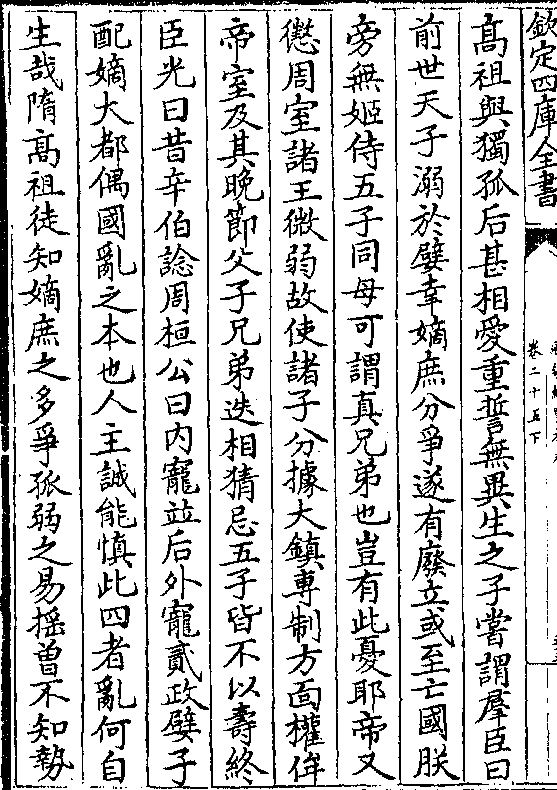 欽定四庫全書
卷二十五下
高祖與獨孤后甚相愛重誓無異生之子嘗謂羣臣曰
前世天子溺於嬖幸嫡庶分爭遂有廢立或至亡國朕
旁無姬侍五子同母可謂真兄弟也豈有此憂耶帝又
懲周室諸王微弱故使諸子分據大鎮専制方面權侔
帝室及其晚節父子兄弟迭相猜忌五子皆不以壽終
臣光曰昔辛伯諗周桓公曰内寵並后外寵貳政嬖子
配嫡大都偶國亂之本也人主誠能慎此四者亂何自
生哉隋高祖徒知嫡庶之多爭孤弱之易揺曽不知勢